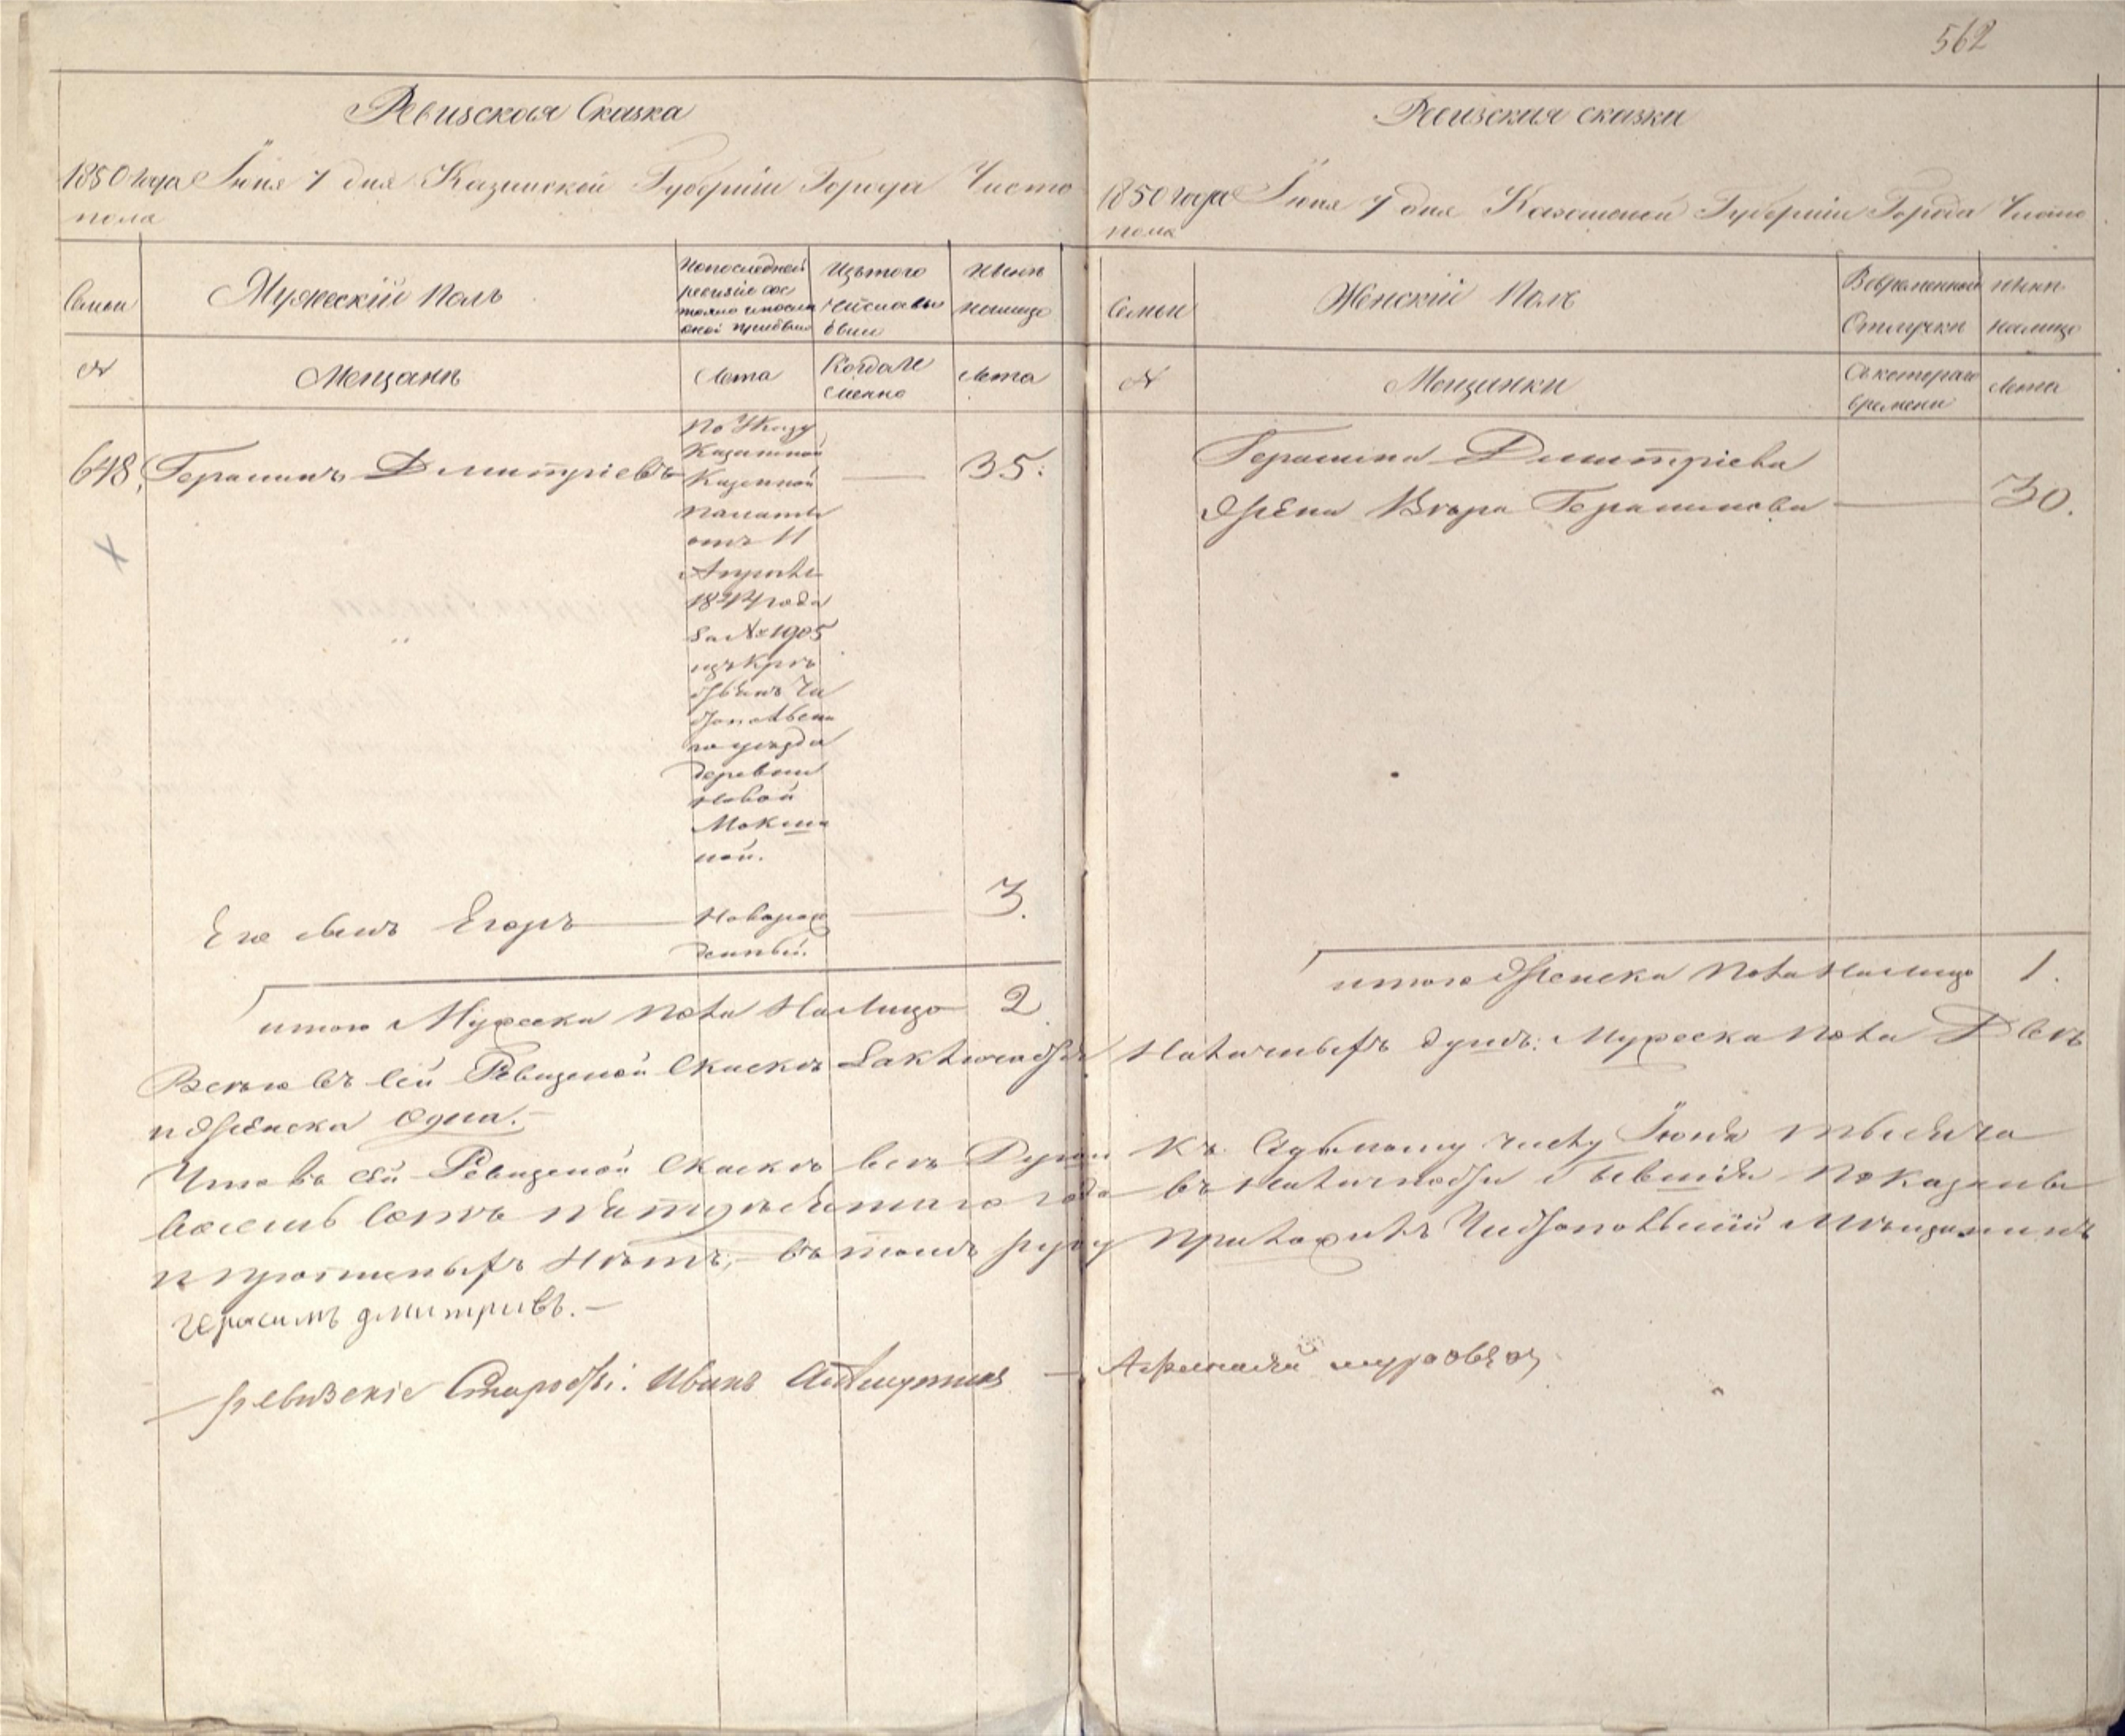 562
Ревизская Сказка
1850 года Іюня 7 дня Казанской Губерніи Города Чисто
поля
Семьи
Мужескій Полъ
По последней
ревизіи сос
тояло и после
оной прибыло
Изъ того
числа вы
было
Ныне
на лицо
№
Мещане
Лета
Когда и
менно
Лета
648. Герасимъ Дмитріевъ
По Указу
Казанской
Казенной
палаты
отъ 11
Апреля
1844 года
За № 1905
изъ кре
стьянъ Чи
стопольска
го уезда
деревни
Новой
Мокши
ной.
35.
Его сынъ Егоръ
Новорож
денный.
3.
итого Мужеска пола на лицо 2
Ревизская сказка
1850 года Іюня 7 дня Казанской Губерніи Города Чисто
поля
Семьи
Женскій Полъ
Во временной
Отлучки
Ныне
на лицо
№
Мещанки
Съ котораго
времени
Лета
Герасима Дмитріева
жена Вера Герасимова 30.
итого Женска пола на лицо 1.
Всего въ сей Ревизской Сказке Заключается Наличныхъ душъ: Мужеска пола Две
и женска одна.—
Что въ сей Ревизской Сказке все Души къ Седьмому числу Іюня тысяча
восемь сотъ пятидесятаго года въ наличности бывшія показаны
и прописныхъ Нетъ;— въ томъ руку приложилъ Чистопольскій Мещанинъ
Герасимъ дмитриевъ.—
ревизскіе Старосты: Иванъ — Афанасій